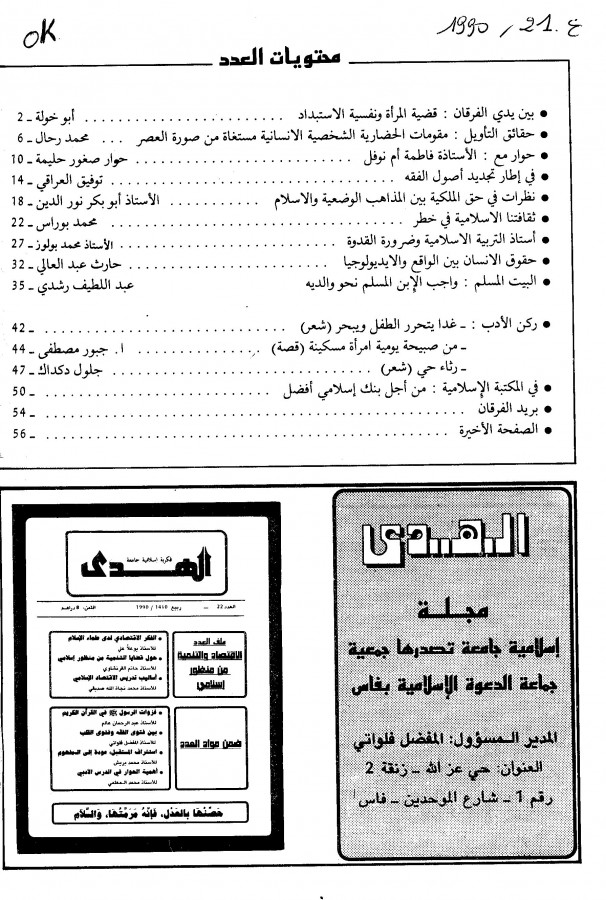 OK
ع .21 / 1990
محتويات العدد
● بين يدي الفرقان : قضية المرأة ونفسية الاستبداد ........ أبو خولة ـ 2
● حقائق التأويل : مقومات الحضارية الشخصية الانسانية مستغاة من صورة العصر ... محمد رحال ـ 6
● حوار مع : الأستاذة فاطمة أم نوفل ........ حوار صغور حليمة ـ 10
● في إطار تجديد أصول الفقه ........ توفيق العراقي ـ 14
● نظرات في حق الملكية بين المذاهب الوضعية والاسلام ........ الأستاذ أبو بكر نور الدين ـ 18
● ثقافتنا الاسلامية في خطر ........ محمد بوراس ـ 22
● أستاذ التربية الاسلامية وضرورة القدوة ........ الأستاذ محمد بولوز ـ 27
● حقوق الانسان بين الواقع والايديولوجيا ........ حارث عبد العالي ـ 32
● البيت المسلم : واجب الإبن المسلم نحو والديه عبد اللطيف رشدي ـ 35
● ركن الأدب : ـ غدا يتحرر الطفل ويبحر (شعر) ........ ـ 42
ـ من صبيحة يومية امرأة مسكينة (قصة) ........ ا. جبور مصطفى ـ 44
ـ رثاء حي (شعر) ........ جلول دكداك ـ 47
● في المكتبة الإسلامية : من أجل بنك إسلامي أفضل ........ ـ 50
● بريد الفرقان ........ ـ 54
● الصفحة الأخيرة ........ ـ 56
الهدى
مجلة
إسلامية جامعة تصدرها جمعية
جماعة الدعوة الإسلامية بفاس
المدير المسؤول: المفضل فلواتي
العنوان: حي عز الله ـ زنقة 2
رقم 1 ـ شارع الموحدين ـ فاس
فكرية اسلامية جامعة
الهدى
العدد 22 ـ ربيع 1410 / 1990 الثمن: 8 دراهم
ملف العدد
الاقتصاد والتنمية
من منظور
إسلامي
● الفكر الاقتصادي لدى علماء الإسلام
للأستاذ بوعلا علي
● حول قضايا التنمية من منظور إسلامي
● أساليب تدريس الاقتصاد الإسلامي
للأستاذ محمد نجاة الله صديقي
ضمن مواد العدد
● غزوات الرسول ﷺ في القرآن الكريم
للأستاذ عبد الرحمان
● بين فتوى الفقه وفتوى القلب
للأستاذ المفضل فلواتي
● استشراف المستقبل، عودة إلى المفهوم
للأستاذ محمد بريش
● أهمية الحوار في الدرس الأدبي
للأستاذ محمد
حَصِّنْهَا بِالعَدْلِ، فَإِنَّهُ مَرَمَّتُهَا، وَالسَّلاَمِ